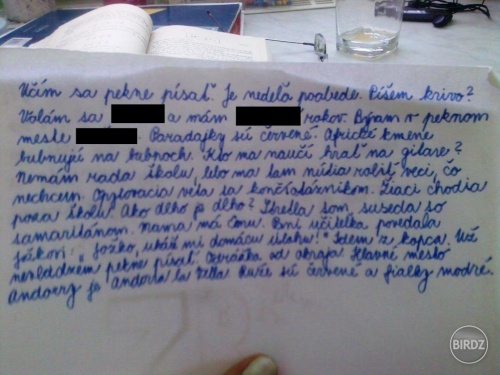 Učím sa pekne písať. Je nedeľa poobede. Píšem krivo?
Volám sa a mám rokov. Bývam v peknom
meste . Paradajky sú červené. Africké kmene
bubnujú na bubnoch. Kto ma naučí hrať na gitare?
Nemám rada školu, lebo ma tam nútia robiť veci, čo
nechcem. Opytovacia veta sa končí otáznikom. Žiaci chodia
poza školu. Ako dlho je dlho? Zhrešila som, suseda so
samaritánom. Mama má Emu. Pani učiteľka povedala
Jožkovi: "Jožko, ukáž mi domácu úlohu!" Idem z kopca. Už
nezvládnem pekne písať. Otváska od okraja. Hlavné mesto
Andorry je Andorra la Vella. Ruže sú červené a fialky modré.
BIRDZ